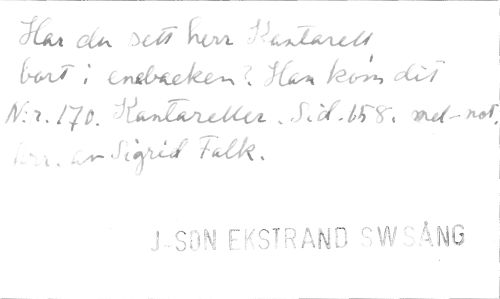 Har du sett herr Kantarell
bort i enebacken? Han kom dit
N:r. 170. Kantareller. Sid. 158. med not.
arr. av Sigrid Falk.
J-SON EKSTRAND SWSÅNG